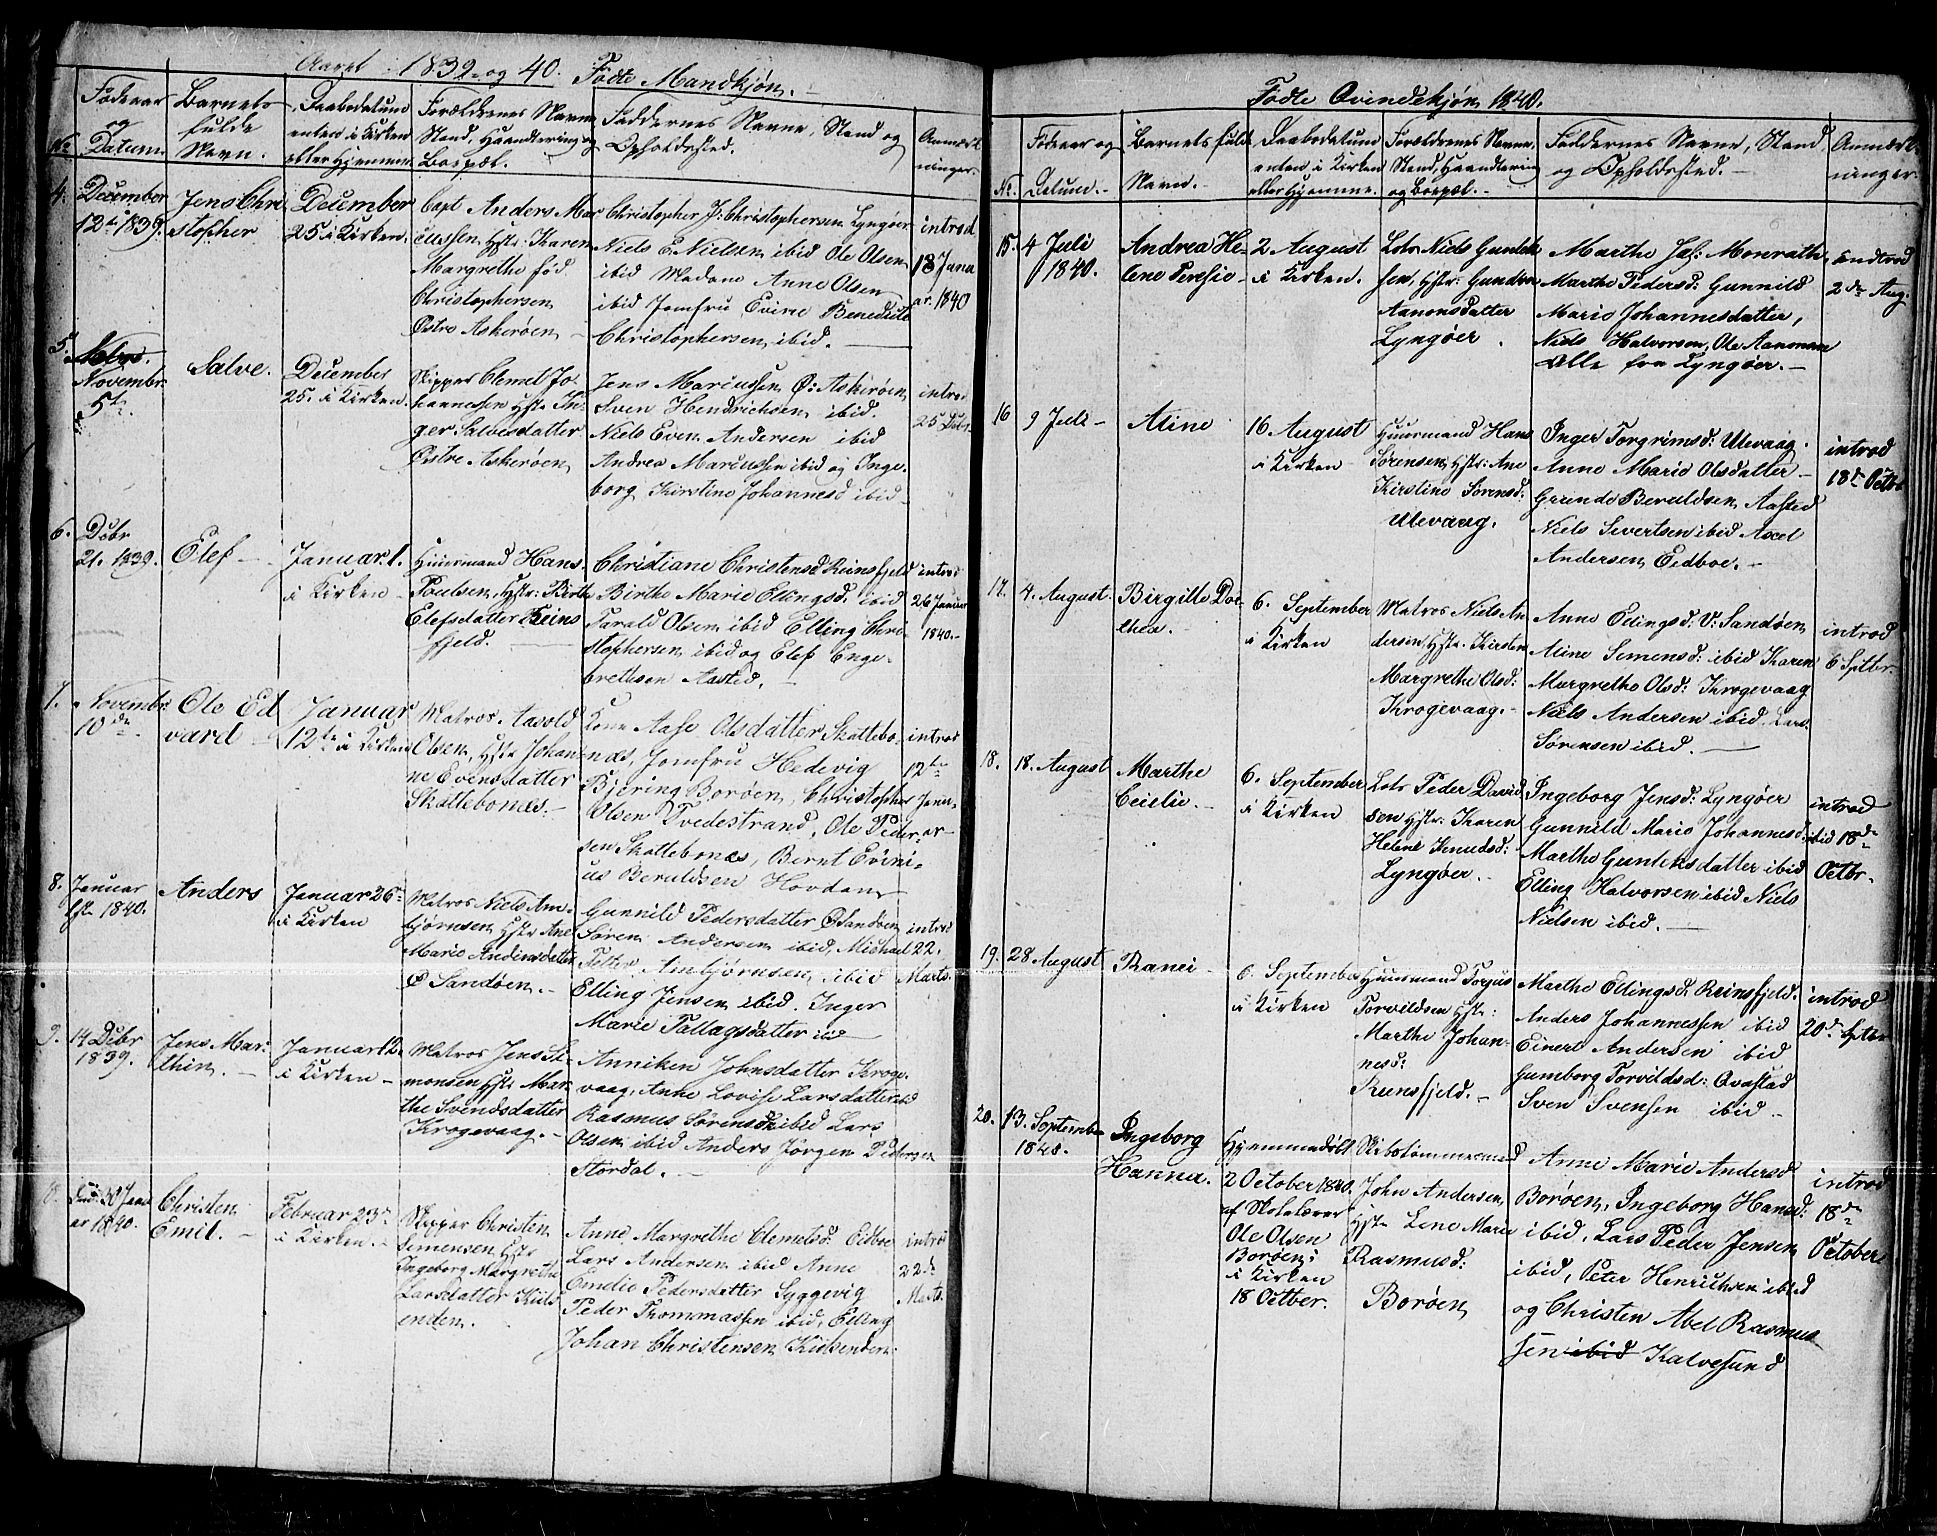 Aaret 1839 og 40. Fødte Mandkjøn.
No
Fødselsaar og Datum.
Barnets fulde Navn.
Daabsdatum enten i Kirken eller Hjemme.
Forældrenes Navne, Stand, Haandtering og Bopæl.
Faddernes Navne, Stand og Opholdssted.
Anmærkninger.
4.
December
12te 1839.
Jens Chri
stopher
December
25 i Kirken.
Capt Anders Mar
cussen Hstr: Karen
Margrethe fød
Christophersen
Østre Askerøen
Christopher J: Christophersen Lyngøer
Niels E. Nielsen ibid Ole Olsen
ibid Madame Anne Olsen
ibid Jomfru Evine Benedicte
Christophersen ibid.
introd
18 Janu
ar. 1840
5.
Novembr.
5te.
Salve.
December
25. i Kirken.
Skipper Clemet Jo-
hannessen Hstr In-
ger Salvesdatter
Østre Askerøen
Jens Marcussen Ø: Askerøen
Sven Hendrichsen ibid.
Niels Even Andersen ibid
Andrea Marcussen ibid og Inge-
borg Kirstine Johannesd ibid
introd
25 Debr
6.
Debr
21. 1839.
Elef
Januar 1.
i Kirken
Huusmand Hans
Poulsen, Hstr: Birthe
Elefsdatter Reins
fjeld.
Christiane Christensd Reinsfjeld
Birthe Marie Ellingsd. ibid
Tarald Olsen ibid Elling Chri-
stophersen ibid og Elef Enge-
brethsen Aasted.
introd
26 Januar
1840.
7.
Novembr.
10de
Ole Ed
vard
Januar
12te i Kirken
Matros Aavold
Olsen, Hstr Johan-
ne Evensdatter
Skattebonæs.
Kone Aase Olsdatter Skattebo-
næs, Jomfru Hedevig
Bjering Borøen, Christopher
Olsen Tvedestrand, Ole Peder-
sen Skattebonæs, Bernt Evini-
us Beruldsen Hovdan
introd
12te
Janu-
ar
8.
Januar
1ste 1840.
Anders
Januar 26
i Kirken
Matros Niels Am-
bjørnsen Hstr Ane
Marie Andersdatter
Ø Sandøen.
Gunnild Pedersdatter Ø Sandøen
Søren Andersen ibid, Michael
Petter Ambjørnsen ibid
Elling Jensen ibid. Inger
Marie Tallagsdatter ibd
introd
22.
Marts.
9.
14 Debr
1839.
Jens Mar-
thin.
Januar 12.
i Kirken
Matros Jens Si-
monsen Hstr Mar
the Svendsdatter
Krogevaag.
Anniken Johnsdatter Kroge-
vaag, Anne Lovise Larsdatter ibd
Rasmus Sørensen ibid Lars
Olsen ibid Anders Jørgen Pedersen
Stordal.
30 Janu
ar 1840.
Christen
Emil.
Februar 23
i Kirken.
Skipper Christen
Simensen Hstr
Ingeborg Margrethe
Larsdatter Kils
enden.
Anne Margrethe Clemetsd: Eidboe
Lars Andersen ibid Anne
Emelie Pedersdatter Lyggevig
Peder Thommassen ibid, Elling
Johan Christensen Kilsenden.
introd
22de
Marts
Fødte Qvindekjøn 1840.
No.
Fødsaar og Datum.
Barnets fulde Navn.
Daabsdatum enten i Kirken eller Hjemme.
Forældrenes Navne, Stand, Haandtering og Bopæl.
Faddernes Navne, Stand og Opholdssted.
Anmærkninger.
15.
4 Juli
1840.
Andrea He-
lene Teresie
2 August
i Kirken.
Lots Niels Gunlek
sen, Hstr: Gunder
Aanonsdatter
Lyngøer.
Marthe Jac: Monrath
Marthe Pedersd: Gunnild
Marie Johannesdatter,
Niels Halvorsen, Ole Aanonsen
Alle fra Lyngøer.
introd
2den Aug.
16
9 Juli
Aline
16 August
i Kirken
Huusmand Hans
Sørensen Hstr: Ane
Kirstine Sørensd:
Ulevaag.
Inger Torgrimsd: Ulevaag.
Anne Marie Olsdatter
Grunde Beruldsen Aasted
Niels Sivertsen ibid Axel
Andersen Eidboe.
introd
18de Octbr
17.
4. August.
Birgitte Do-
thea.
6. September
i Kirken
Matros Niels An-
dersen, Hstr. Kirsten
Margrethe Olsd:
Krogevaag.
Anne Ellingsd: V: Sandøen
Aline Simensd: ibid Karen
Margrethe Olsd: Krogevaag
Niels Andersen ibid. Lars
Sørensen ibid.
introd
6 Sptbr.
18.
18. August
Marthe
Cecilie.
6. September
i Kirken
Lots Peder David
sen Hstr: Karen
Helene Knudsd:
Lyngøer.
Ingeborg Jensd: Lyngøer
Gunnild Marie Johannesd:
ibid
Marthe Gunleksdatter ibid
Elling Halvorsen ibid Niels
Nielsen ibid.
introd
18de
Octbr.
19.
28 August
Ranei
6. September
i Kirken
Huusmand Torjus
Torvildsen Hstr:
Marthe Johan-
nesd:
Reinsfjeld.
Marthe Ellingsd: Reinsfjeld.
Anders Johannessen ibid
Einert Andersen ibid
Gumborg Torvildsd: Qvastad
Sven Svensen ibid.
introd
20de Sptbr
20.
13. September
1840.
Ingeborg
Hanna.
Hjemmedøbt
2 October 1840.
af Skolelærer
Ole Olsen
Borøen;
i Kirken
18 Octber.
Skibstømmermand
John Andersen
Hstr Lene Marie
Rasmusd:
Borøen
Anne Marie Andersd
Borøen, Ingeborg Hansd:
ibid, Lars Peder Jensen
ibid, Peter Henrichsen ibid
og Christen Abel Rasmus
sen ibid Kalvesund
introd
18de
October